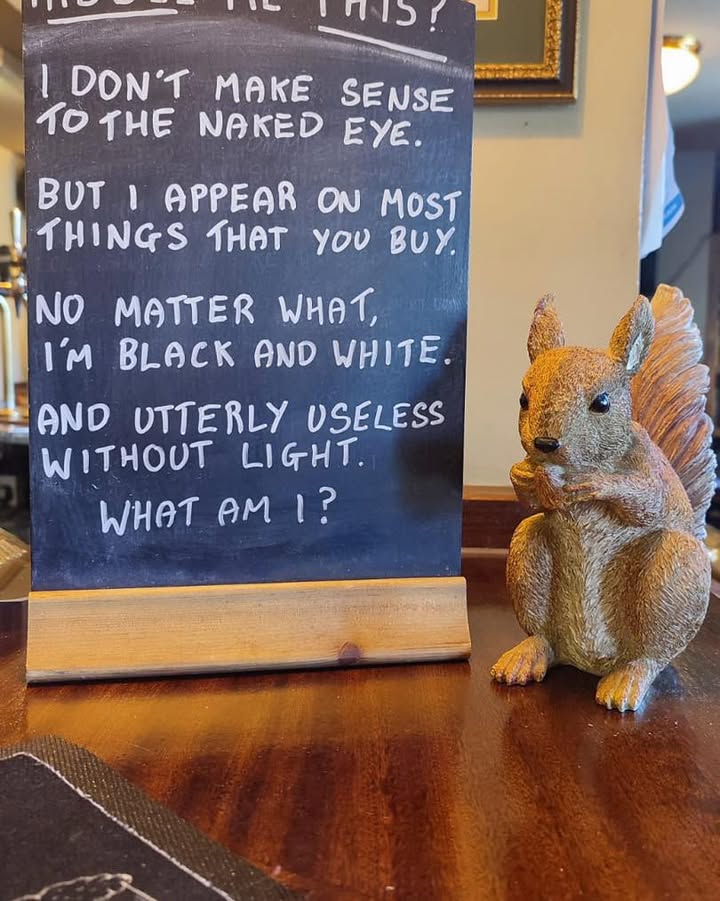 THIS?
I DON'T MAKE SENSE
TO THE NAKED EYE.
BUT I APPEAR ON MOST
THINGS THAT YOU BUY.
NO MATTER WHAT,
I'M BLACK AND WHITE.
AND UTTERLY USELESS
WITHOUT LIGHT.
WHAT AM I?